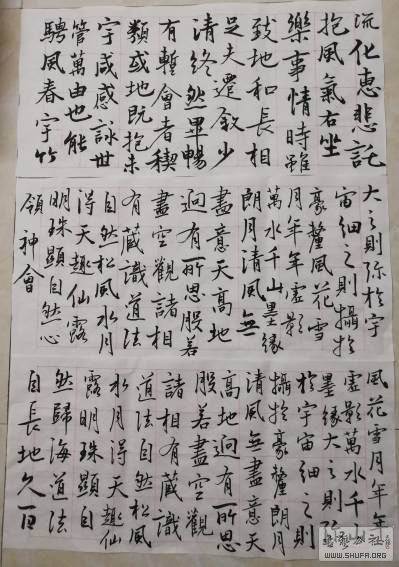 流化惠悲託
抱風氣右坐
樂事情時雖
致地和長相
足夫遷敘少
清終然畢暢
有暫會者稧
類或地既抱未
宇咸感詠世
管萬由也能
騁風春宇竹
大之則弥於宇
宙細之則攝於
豪釐風花雪
月年年虛影
萬水千山墨緣
朗月清風無
盡意天高地
迥有所思般若
盡空觀諸相
有藏識道法
自然松風水月
得天趣仙露
明珠顯自然心
領神會
風花雪月年年
虛影萬水千
墨緣大之則弥
於宇宙細之則
攝於豪釐朗月
清風無盡意天
高地迥有所思
般若盡空觀
諸相有藏識
道法自然松風
水月得天趣仙
露明珠顯自
然歸海道法
自長地久百
WWW.SHUFA.ORG